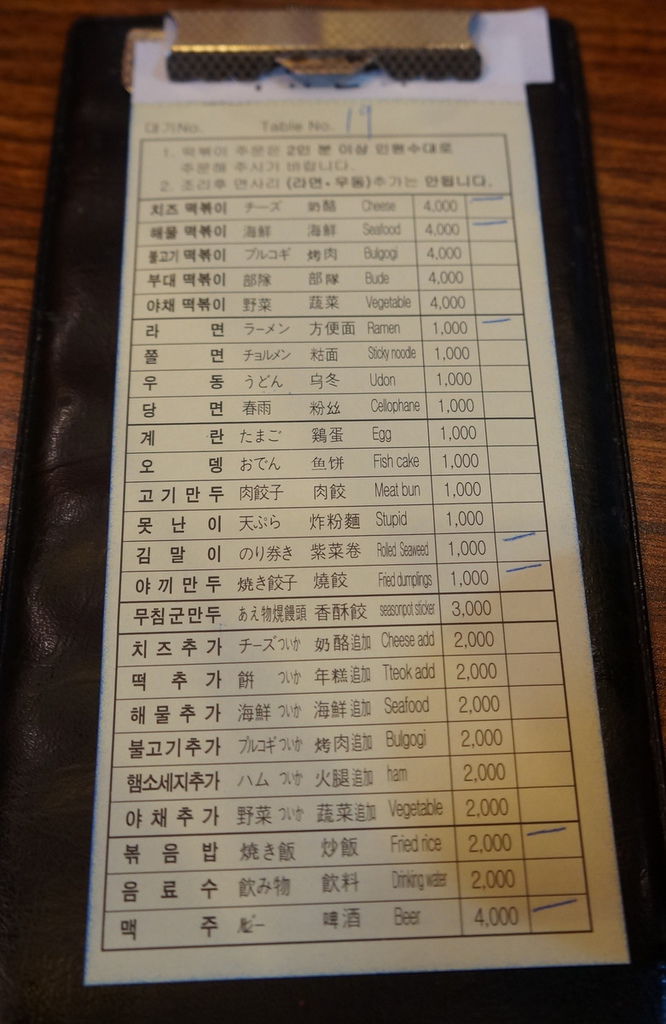 대기No. Table No. 19
1. 떡볶이 주문은 2인 분 이상 인원수대로
주문해 주시기 바랍니다.
2. 조리후 면사리 (라면·우동)추가는 안됩니다.
치즈 떡볶이 チーズ 奶酪 Cheese 4,000
해물 떡볶이 海鮮 海鮮 Seafood 4,000
불고기 떡볶이 プルコギ 烤肉 Bulgogi 4,000
부대 떡볶이 部隊 部隊 Bude 4,000
야채 떡볶이 野菜 蔬菜 Vegetable 4,000
라 면 ラーメン 方便面 Ramen 1,000
쫄 면 チョルメン 粘面 Sticky noodle 1,000
우 동 うどん 乌冬 Udon 1,000
당 면 春雨 粉丝 Cellophane 1,000
계 란 たまご 鷄蛋 Egg 1,000
오 뎅 おでん 鱼饼 Fish cake 1,000
고 기 만 두 肉餃子 肉餃 Meat bun 1,000
못 난 이 天ぷら 炸粉麵 Stupid 1,000
김 말 이 のり券き 紫菜卷 Rolled Seaweed 1,000
야 끼 만 두 焼き餃子 燒餃 Fried dumplings 1,000
무침군만두 あえ物焜饅頭 香酥餃 seasonpot sticker 3,000
치 즈 추 가 チーズついか 奶酪追加 Cheese add 2,000
떡 추 가 餅 ついか 年糕追加 Tteok add 2,000
해 물 추 가 海鮮 ついか 海鮮追加 Seafood 2,000
불고기추가 プルコギついか 烤肉追加 Bulgogi 2,000
햄소세지추가 ハム ついか 火腿追加 ham 2,000
야 채 추 가 野菜 ついか 蔬菜追加 Vegetable 2,000
볶 음 밥 焼き飯 炒飯 Fried rice 2,000
음 료 수 飲み物 飲料 Drinking water 2,000
맥 주 ビー 啤酒 Beer 4,000